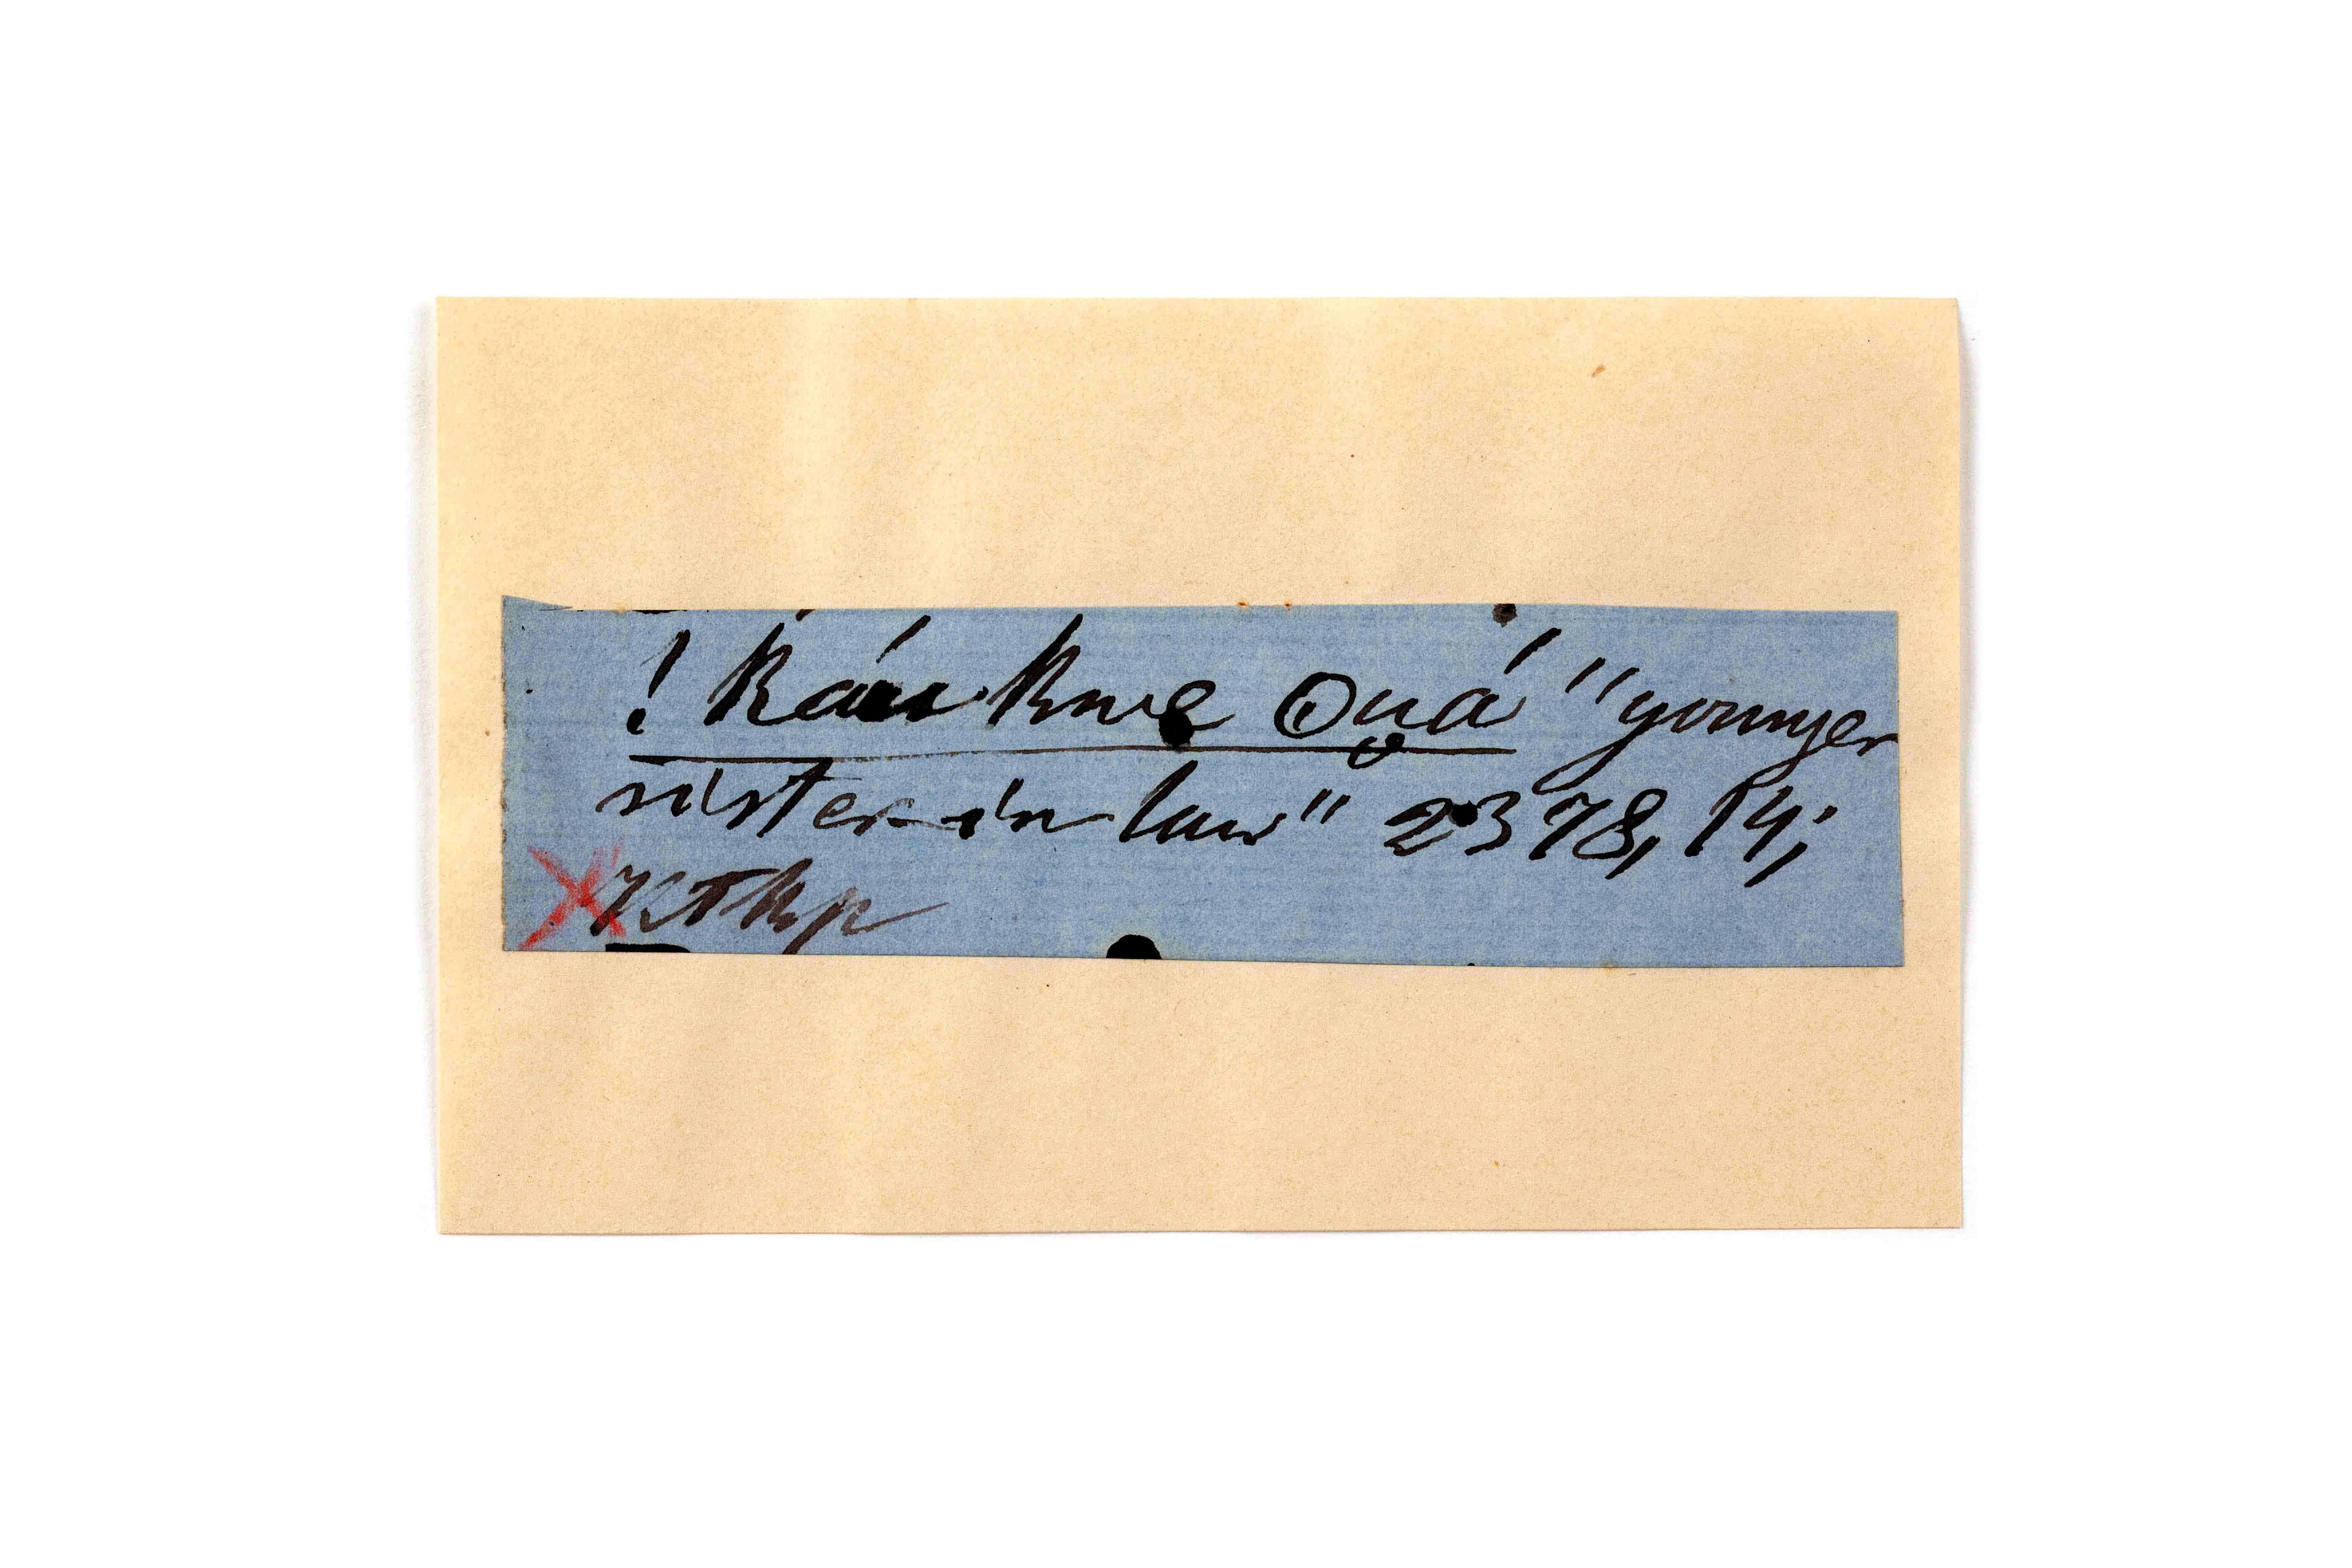 !káu kwe ʘu̥á "younger
sister-in-law" 2378, 14;